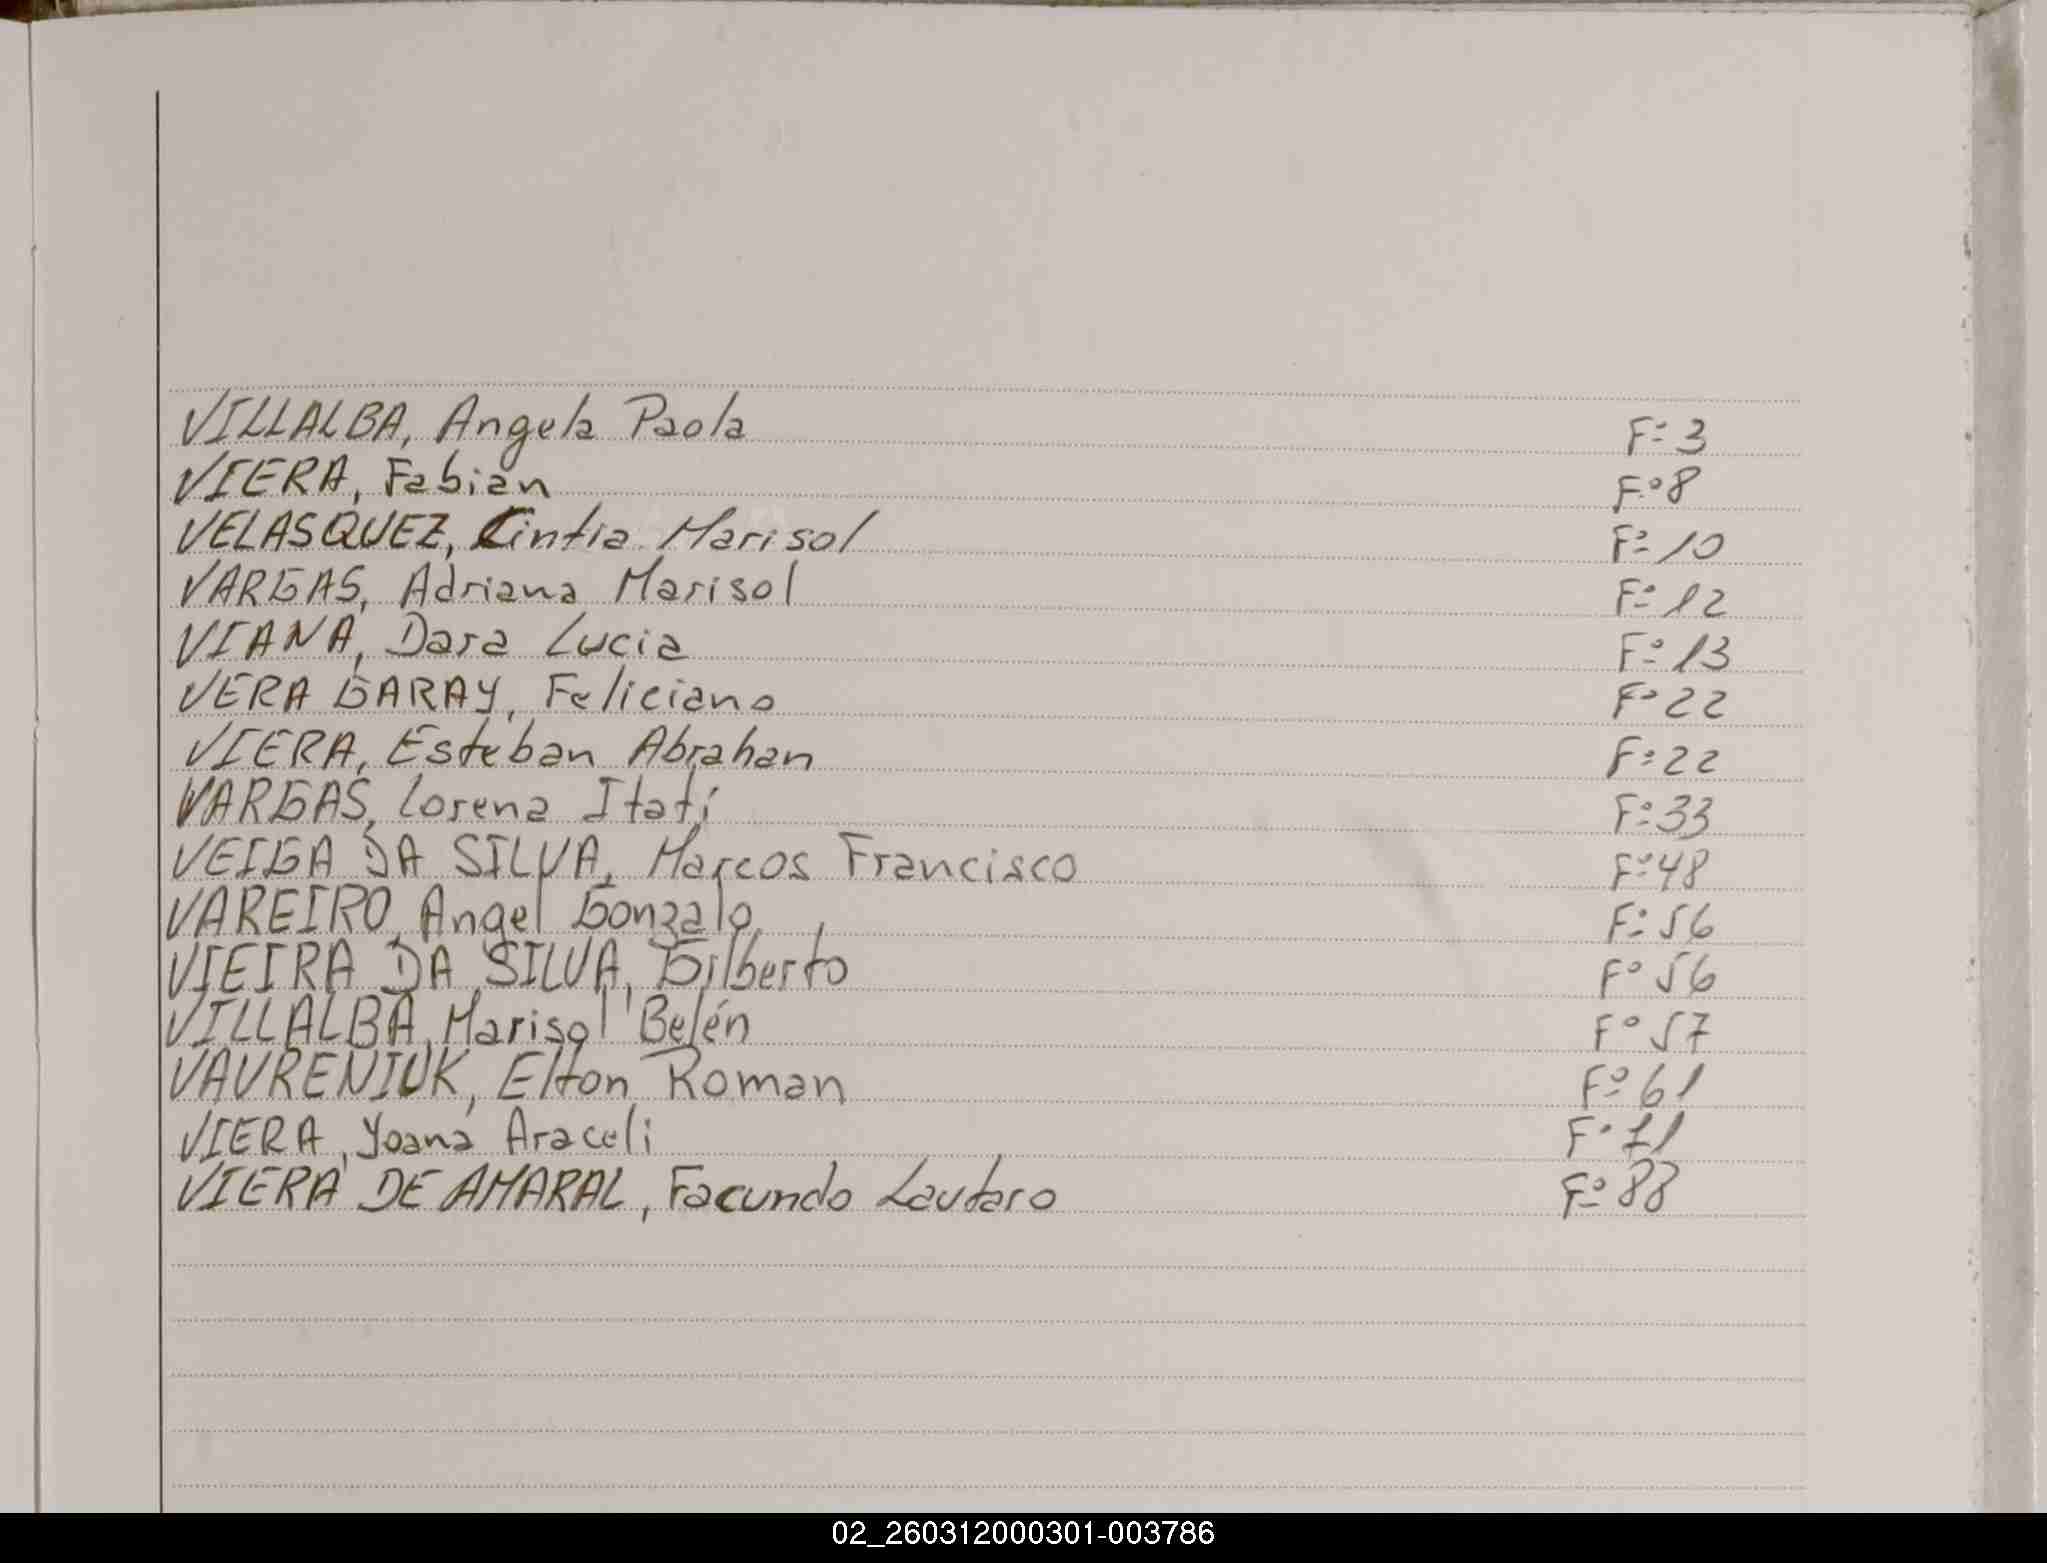 VILLALBA, Angela Paola F⁰ 3
VIERA, Fabian F⁰ 8
VELASQUEZ, Cintia Marisol F⁰ 10
VARGAS, Adriana Marisol F⁰ 12
VIANA, Dara Lucia F⁰ 13
VERA GARAY, Feliciano F⁰ 22
VIERA, Esteban Abrahan F⁰ 22
VARGAS, Lorena Itatí F⁰ 33
VEIGA DA SILVA, Marcos Francisco F⁰ 48
VAREIRO, Angel Gonzalo F⁰ 56
VIEIRA DA SILVA, Gilberto F⁰ 56
VILLALBA, Marisol Belén F⁰ 57
VAVRENIUK, Elton Roman F⁰ 61
VIERA, Yoana Araceli F⁰ 71
VIERA DE AMARAL, Facundo Lautaro F⁰ 88
02_260312000301-003786